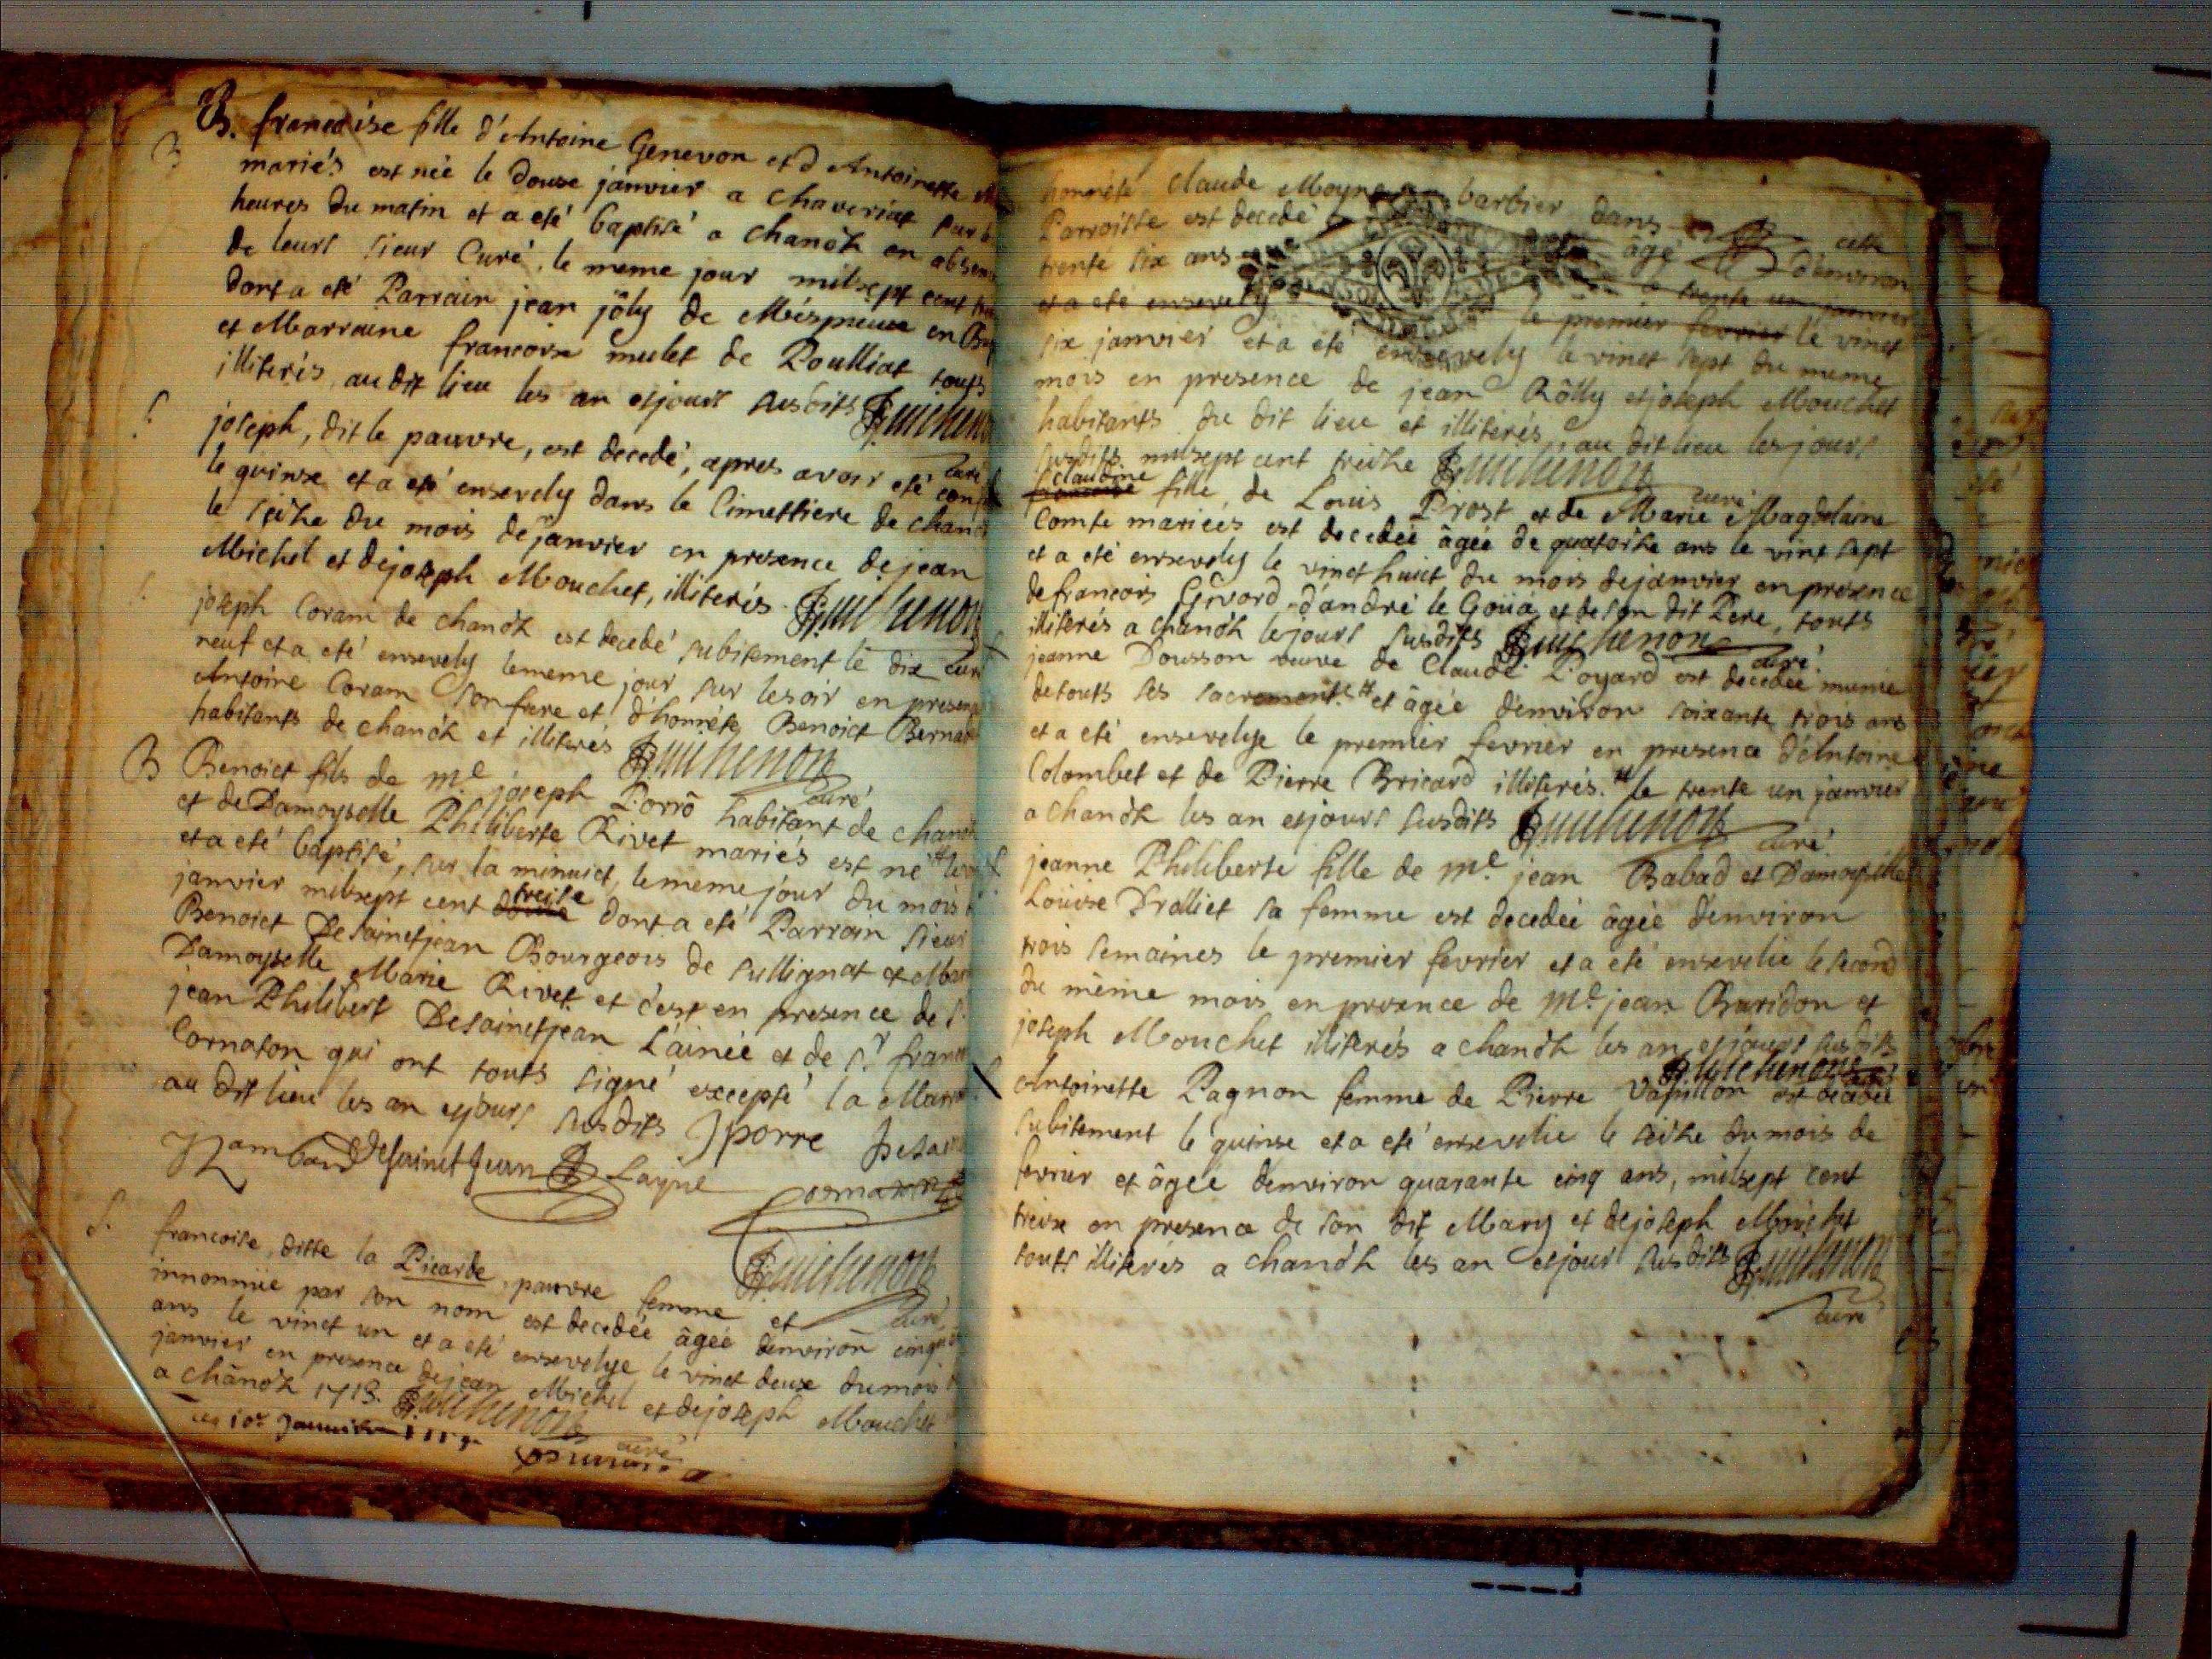 B. francoise fille d'Antoine Genevon et d Antoinette
mariés est née le douse janvier a chaveriat sur
heures du matin et a eté baptisé a chanôz en absen
de leurs sieur Curé, le meme jour milsept cent
dont a eté Parrain jean jôly de en
et Marraine francoise mulet de Poulliat touts
illiterés au dit lieu les an et jours susdits
curé
joseph, dit le pauvre, est decedé, apres avoir eté
le quinse et a eté ensevely dans le Cimettiere de chanô
le seize du mois de janvier en presence de jean
Michel et de joseph Mouchet, illiterés
joseph Coram de chanôz est decedé subitement le dix
curé
neuf et a eté ensevely le meme jour sur le soir en presen
Antoine Coram son frere et d'honnéte Benoict Bernar
habitants de chanôz et illiterés
curé
B Benoict fils de me joseph Porrô habitant de chanôz
et de Damoyselle Philiberte Rivet mariés est né
et a eté baptisé, sur la minuict, le meme jour du mois
janvier milsept cent treise dont a eté Parrain sieur
Benoict Desainctjean Bourgeois de sullignat et Mar
Damoyselle Marie Rivet et c'est en presence de s.
jean Philibert Desainctjean L'ainée et de sr franc
Cornaton qui ont touts signé excepté la Marr
au dit lieu les an et jours susdits Jporre
Desainct Jean Layne
curé
S. francoise, ditte la Picarde, pauvre femme et
innommée par son nom est decedée âgée denvirôn cinq
ans le vinct un et a eté ensevelye le vinct deuse du mois
janvier en presence de jean Michel et de joseph Mouchet
a chânôz 1713.
curé
honnéte claude Moyne barbier dans cette
Parroisse est decedé âgé d'environ
trente six ans a trente un janvier
et a eté ensevely le premier fevrier le vinct
six janvier et a eté ensevely le vinct sept du meme
mois en presence de jean Rôlly et joseph Mouchet
habitants du dit lieu et illiterés au dit lieu les jours
susdits milsept cent treize
curé
claudine
francoise fille de Louis Prost et de Marie Magdelaine
Comte mariées est decedée âgée de quatorze ans le vint sept
et a eté ensevely le vinct huict du mois de janvier en presence
de francois Givord d'andré le Goüá et de son dit Pere, touts
illiterés a chanôz le jours susdits
curé
jeanne Dousson veuve de Claude Poyard est decedée munie
de touts ses sacrements # et âgée denviron soixante trois ans
et a eté ensevelye le premier fevrier en presence d'Antoine
Colombet et de Pierre Bricard illiterés. # le trente un janvier
a chanôz les an et jours susdits
curé
jeanne Philiberte fille de me jean Babad et Damoyselle
Loüise Dralliet sa femme est decedée âgée denviron
trois semaines le premier fevrier et a eté ensevelie le second
du même mois en presence de me jean Buridon et
joseph Mouchet illiterés a chanôz les an et jours susdits
Antoinette Pagnon femme de Pierre Vapillon est decedée
subitement le quinse et a eté ensevelie le seize du mois de
fevrier et âgée denviron quarante cinq ans, milsept cent
treise en presence de son dit Mary et de joseph Mouchet
touts illiterés a chanôz les an et jour susdits
curé